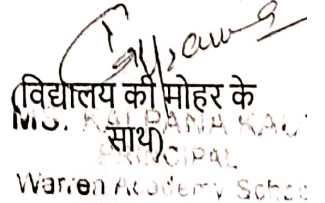 (विद्यालय की मोहर के
MS. KALPANA
साथ)
PRINCIPAL
Warren Academy School